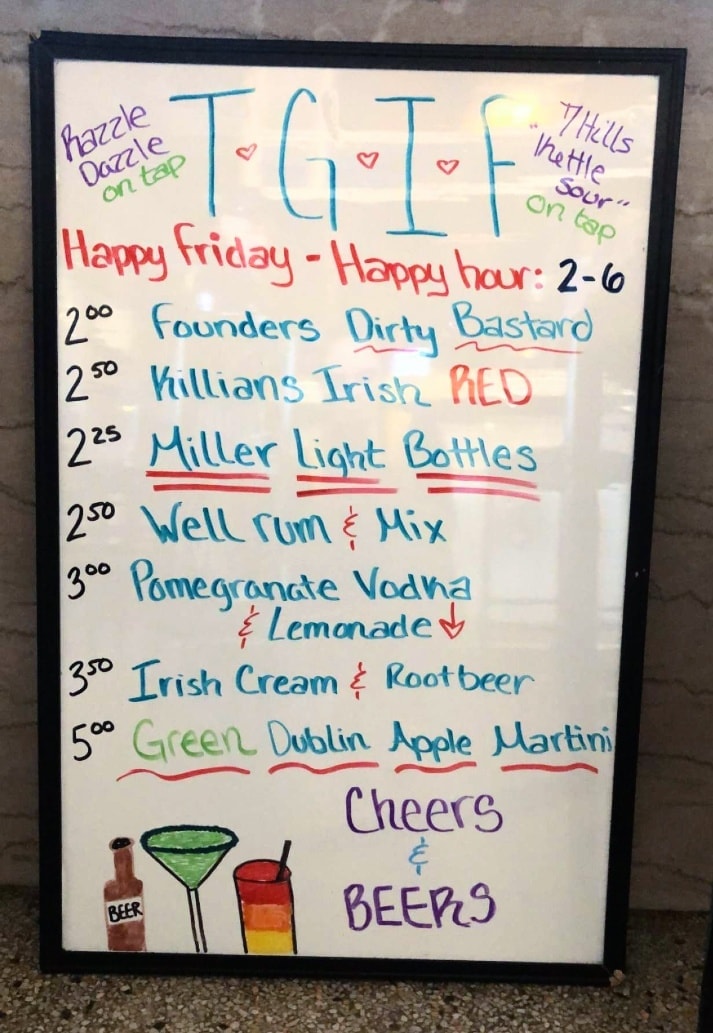 Razzle
Dazzle
on tap
T·G·I·F
7 Hills
"Kettle
sour"
on tap
Happy Friday - Happy hour: 2-6
2⁰⁰ Founders Dirty Bastard
2⁵⁰ Killians Irish RED
2²⁵ Miller Light Bottles
2⁵⁰ Well rum & Mix
3⁰⁰ Pomegranate Vodka
& Lemonade
3⁵⁰ Irish Cream & Rootbeer
5⁰⁰ Green Dublin Apple Martini
Cheers
&
BEERS
BEER